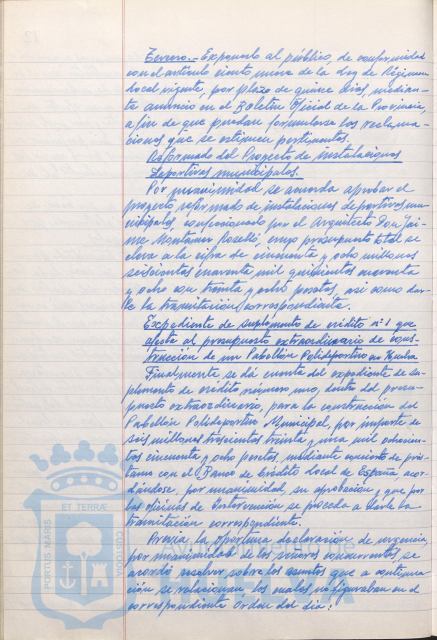 Tercero.- Exponerlo al público, de conformidad
con el artículo ciento nueve de la Ley de Régimen
Local vigente, por plazo de quince días, median-
te anuncio en el Boletín Oficial de la Provincia,
a fin de que puedan formularse las reclama-
ciones que se estimen pertinentes.
Reformado del Proyecto de instalaciones
deportivas municipales.
Por unanimidad se acuerda aprobar el
proyecto reformado de instalaciones deportivas mu-
nicipales, confeccionado por el Arquitecto Don Jai-
me Montaner Roselló, cuyo presupuesto total se
eleva a la cifra de cincuenta y ocho millones
seiscientas cuarenta mil quinientas noventa
y ocho con treinta y ocho pesetas, así como dar-
le la tramitación correspondiente.
Expediente de suplemento de crédito nº 1 que
afecta al presupuesto extraordinario de cons-
trucción de un Pabellón Polideportivo en Huelva
Finalmente se dá cuenta del expediente de su-
plemento de crédito número uno, dentro del presu-
puesto extraordinario, para la construcción del
Pabellón Polideportivo Municipal, por importe de
seis millones trescientas treinta y una mil ochocien-
tas cincuenta y ocho pesetas, mediante concierto de prés-
tamo con el Banco de Crédito Local de España, acor-
dándose, por unanimidad, su aprobación y que por
las oficinas de Intervención se proceda a darle la
tramitación correspondiente.
Previa la oportuna declaración de urgencia,
por unanimidad de los señores concurrentes, se
acordó resolver sobre los asuntos que a continua-
ción se relacionan, los cuales no figuraban en el
correspondiente Orden del día:
PORTUS MARIS
ET TERRÆ
CUSTODIA